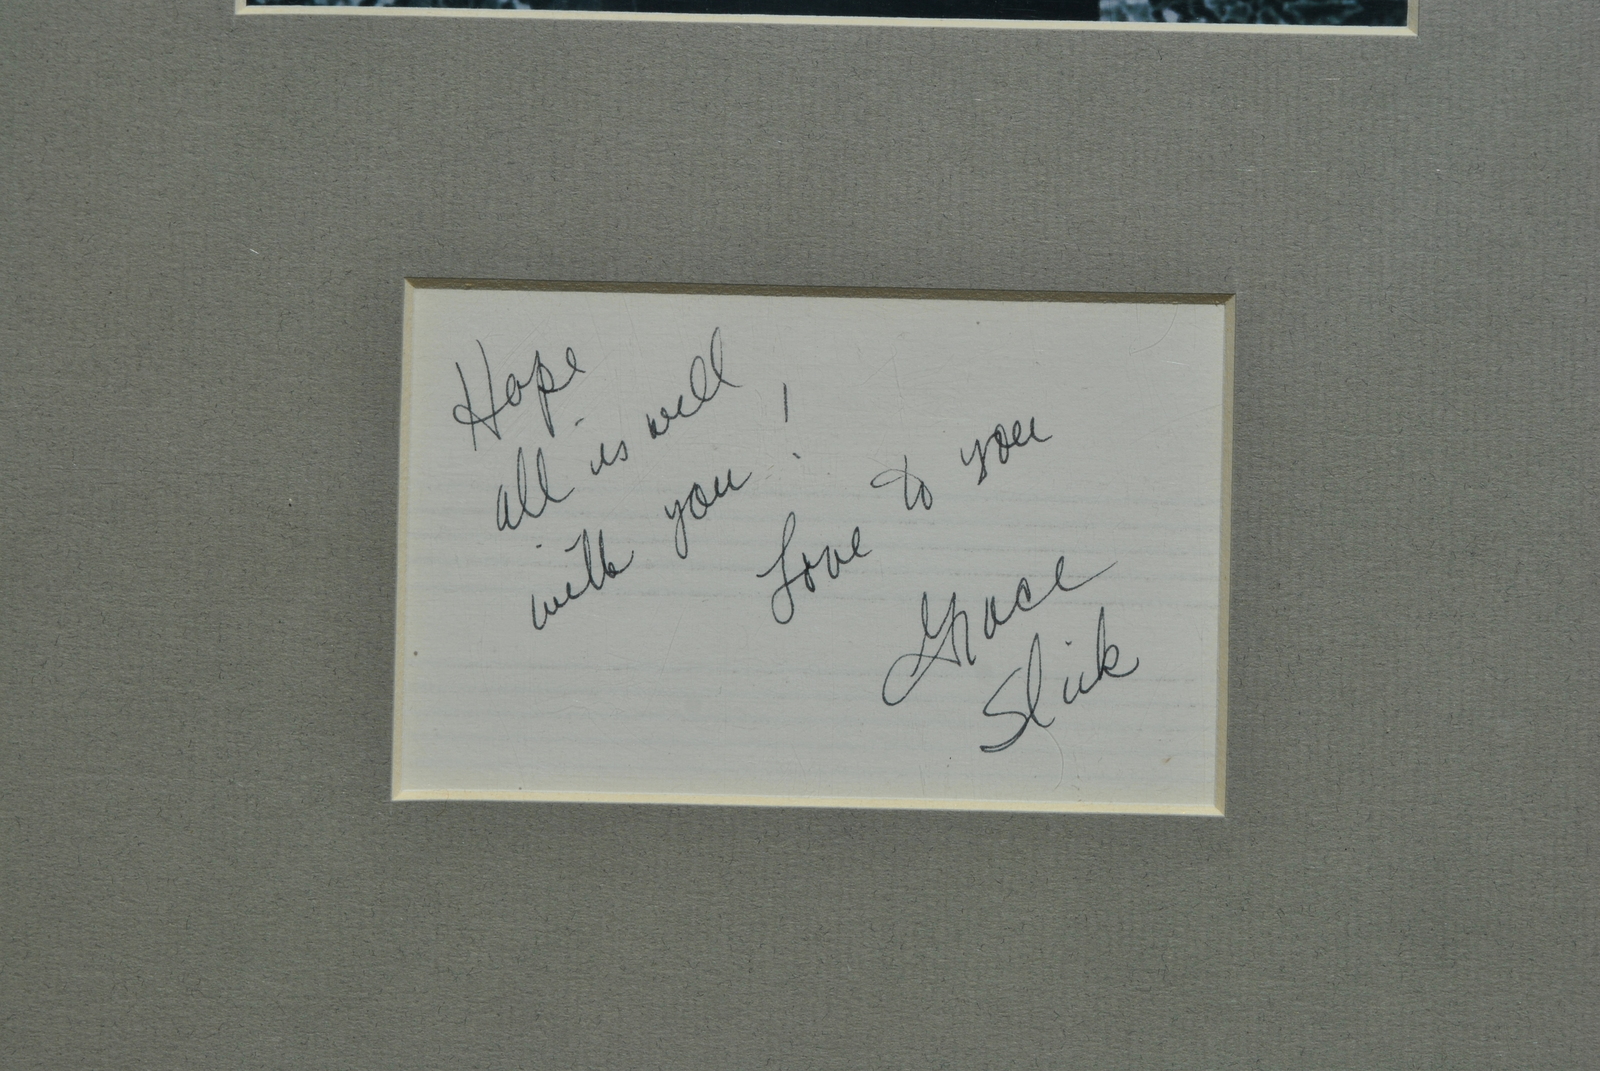 Hope
all is well
with you!
Love to you
Grace
Slick